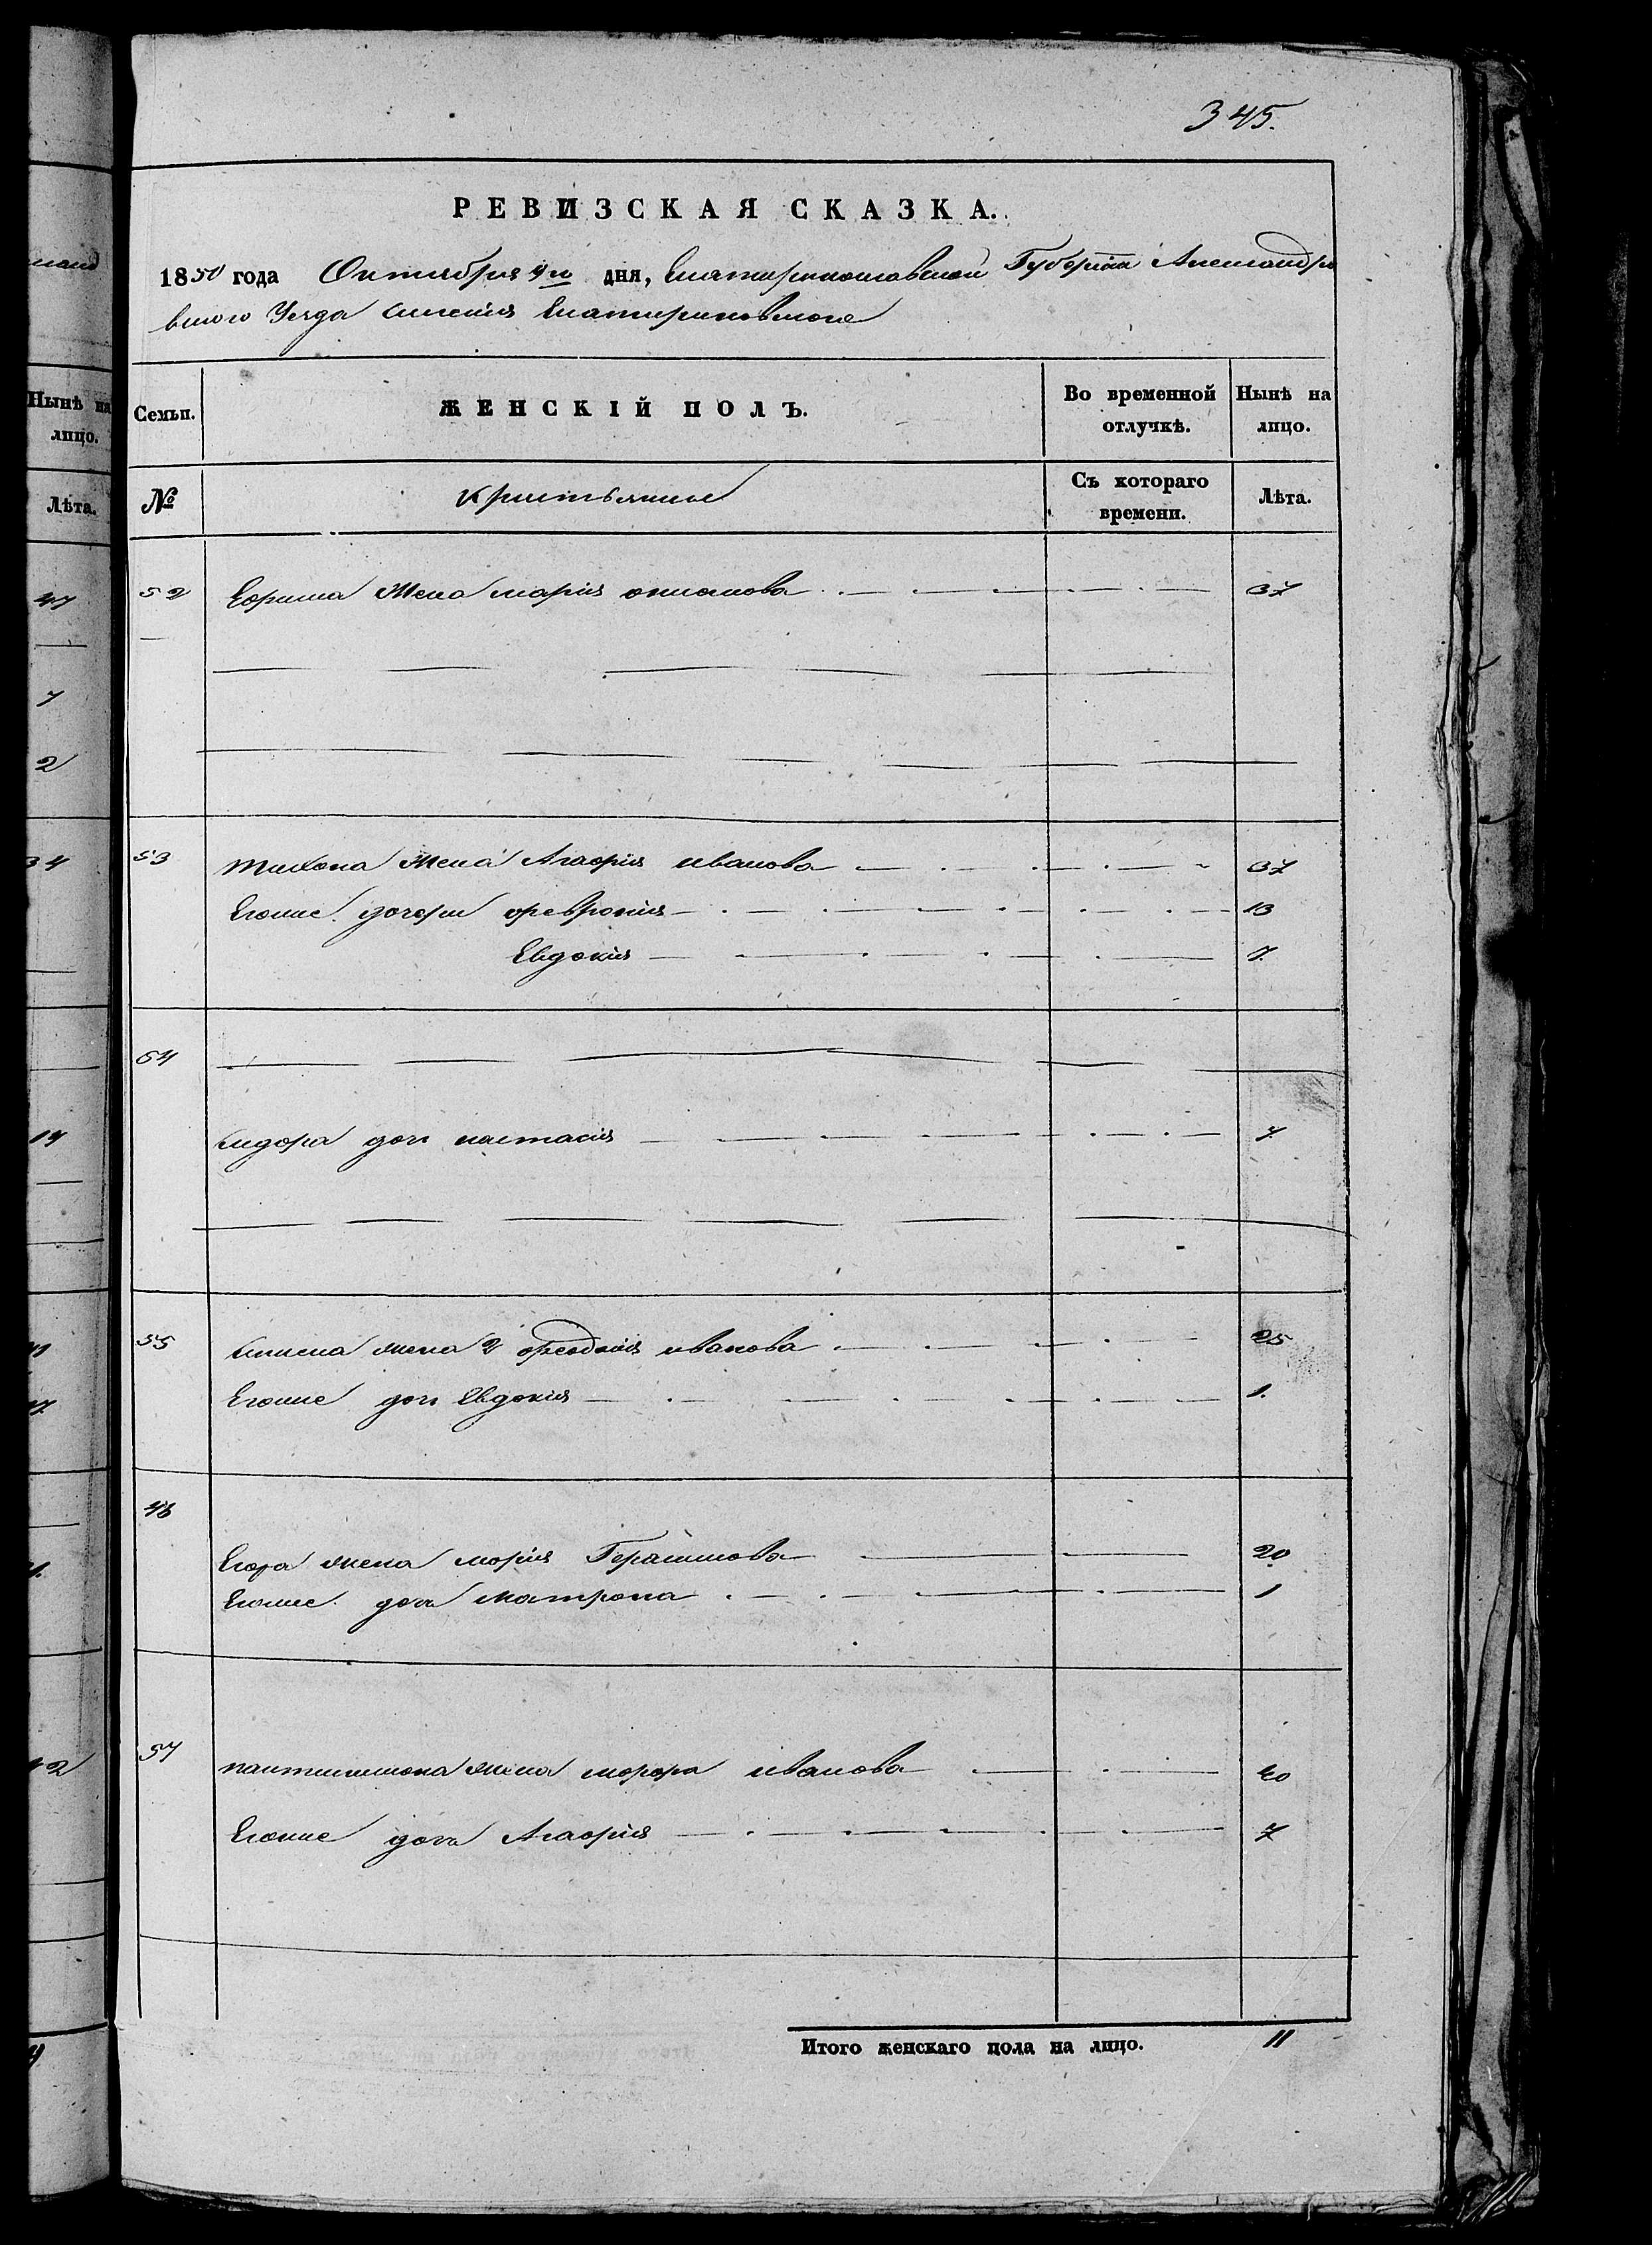 345.
РЕВИЗСКАЯ СКАЗКА.
1850 года Октября 4го дня, Екатеринославской Губернии Александро
вскаго Уезда Имения Екатериновскаго
Нынѣ на лицо.
Семьи. ЖЕНСКІЙ ПОЛЪ. Во временной отлучкѣ. Нынѣ на лицо.
Лѣта.
№ Съ котораго времени. Лѣта.
47
52 Ефрима жена мария 37
7
2
34
53 тихона жена Агафия иванова 37
Егоже дочери февронія 13
Евдокия 7.
54
14
сидора дочь настасия 7.
55 жена 2 феодосия иванова 25
Егоже дочь Евдокия 1.
Егора жена мария Герасимова 20
Егоже дочь матрона 1
42
57 пантилимона жена марфа иванова 40
Егоже дочь Агафия 7
Итого женскаго пола на лицо. 11